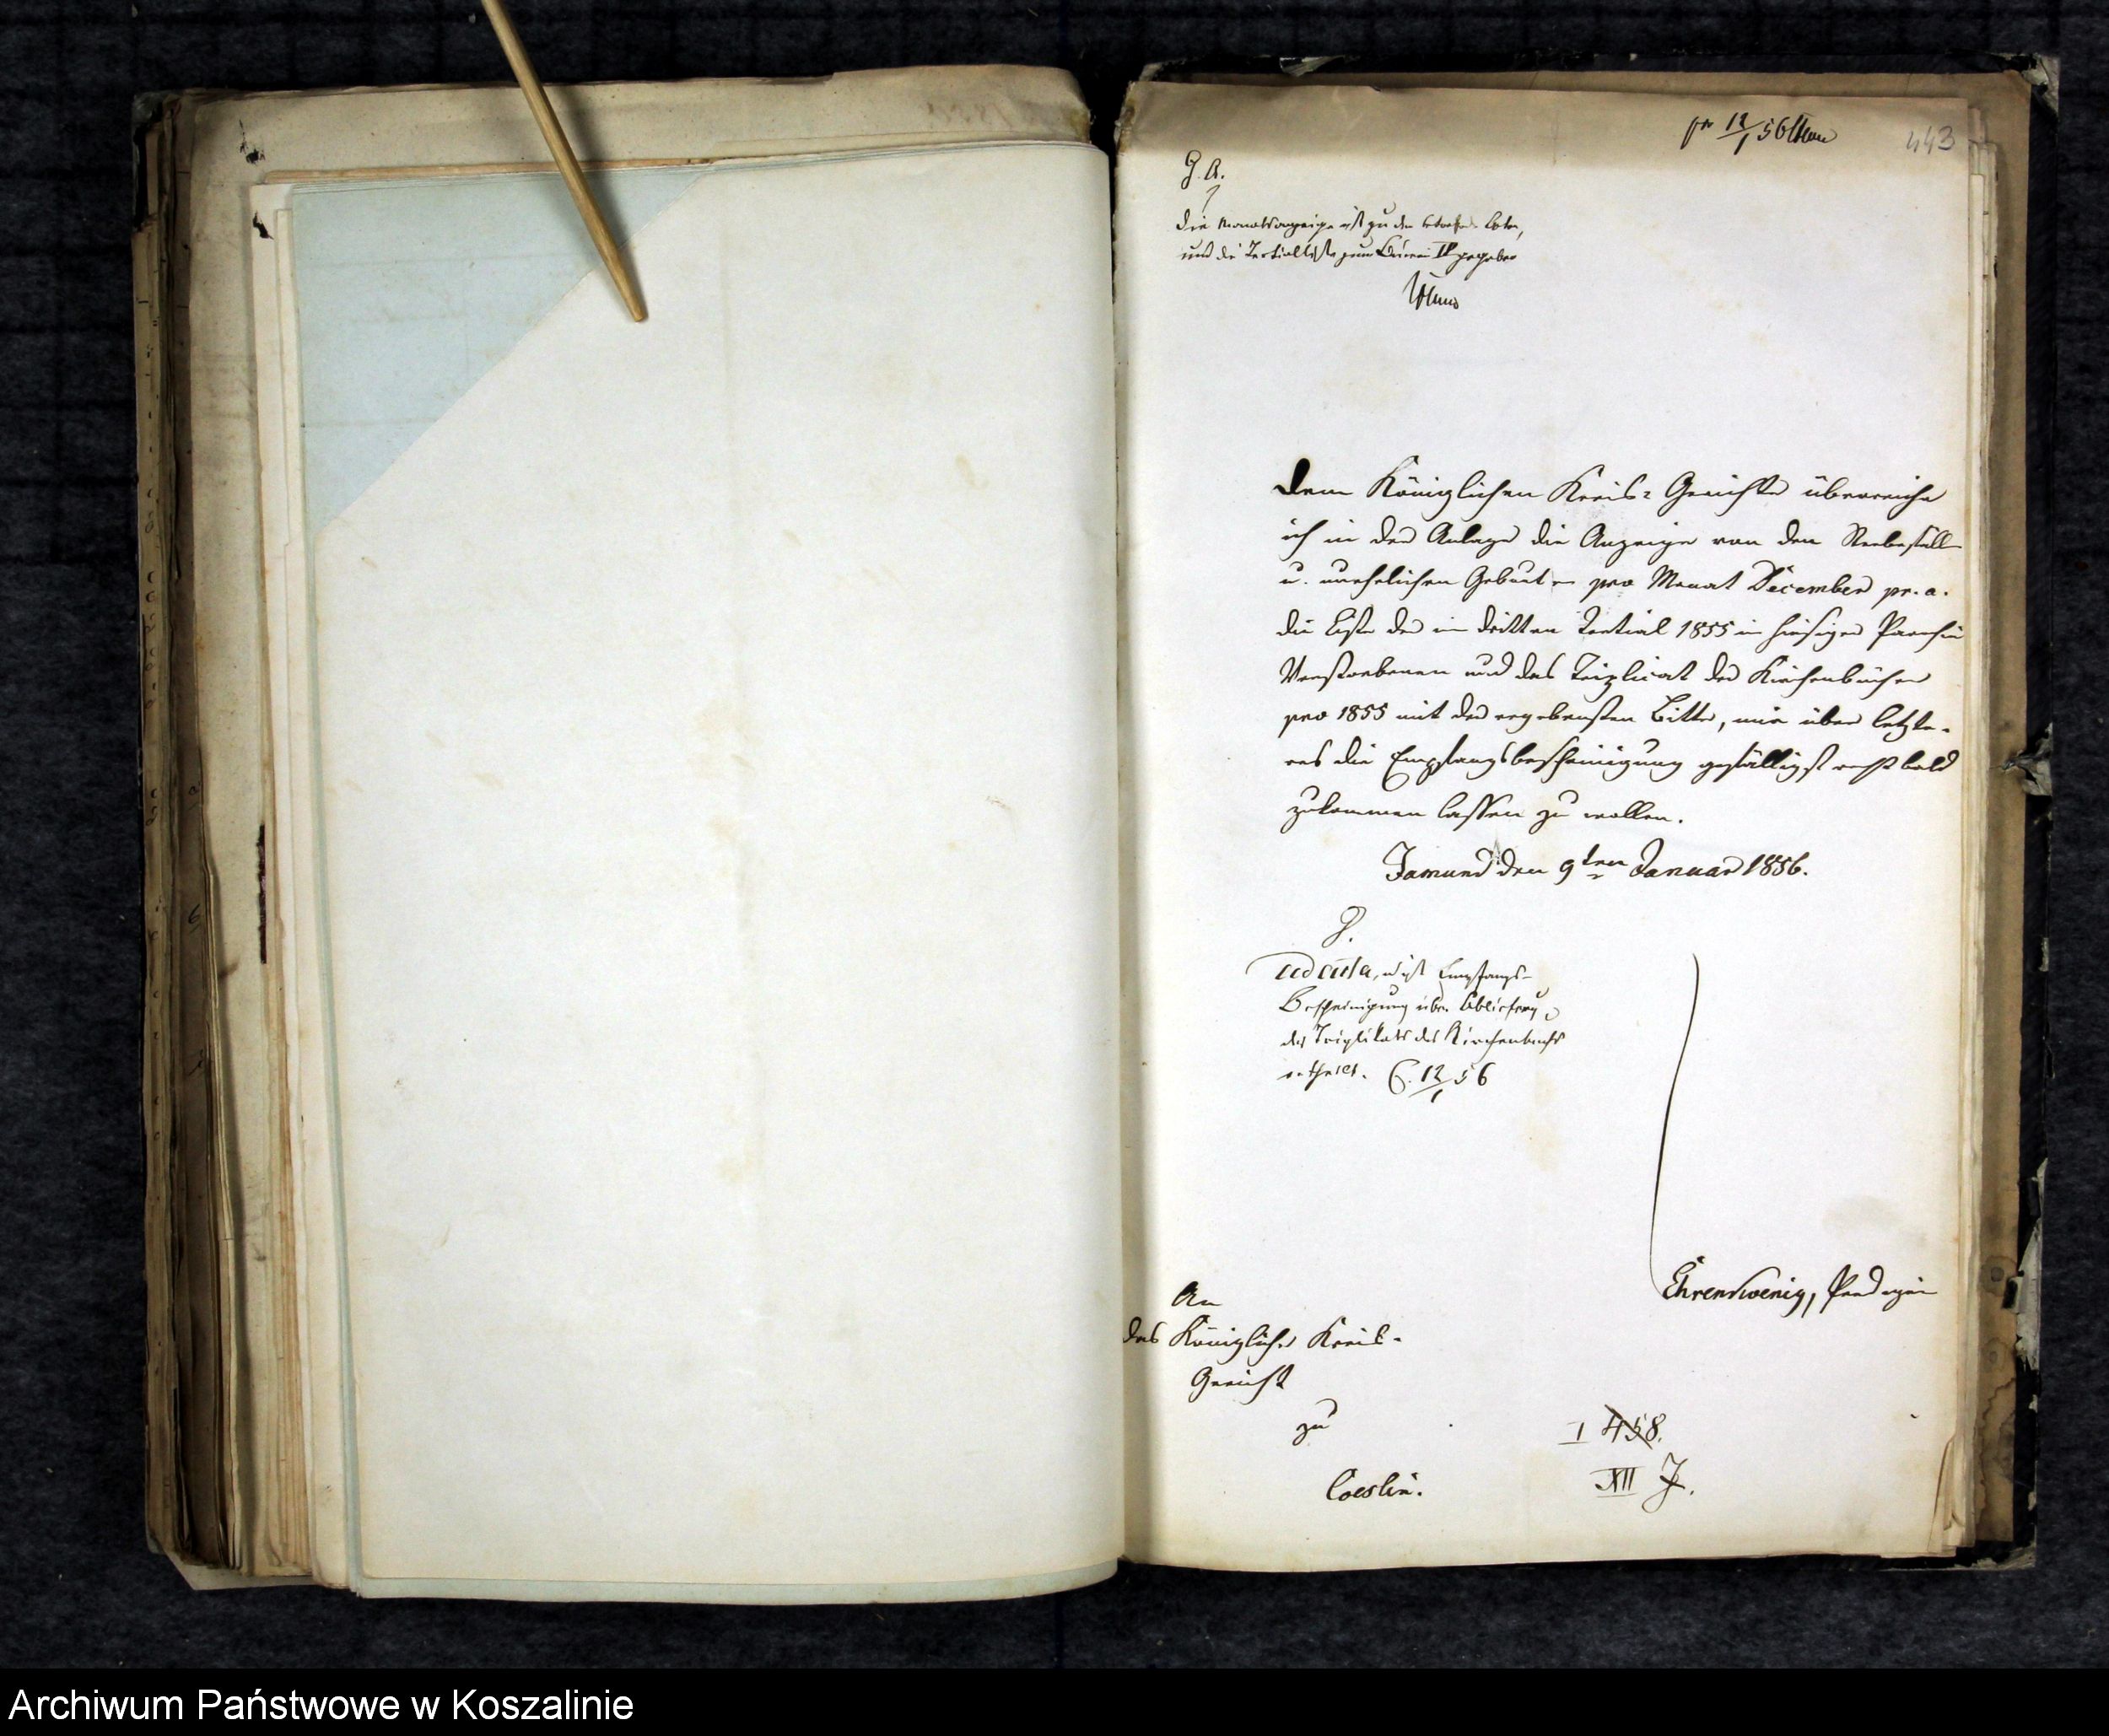 pr 12/1 56
443
G. R.
Die Monatsanzeige ist zu den Akten,
und die Tertialliste zum Büreau IV gegeben
Dem Königlichen Kreis-Gerichte überreiche
ich in der Anlage die Anzeige von den Sterbefäll
u. unehelichen Geburten pro Monat December pr. a.
die Liste der im dritten Tertial 1855 in hiesiger Parochie
Verstorbenen und das Triplicat der Kirchenbücher
pro 1855 mit der ergebensten Bitte, mir über letzte-
res die Empfangsbescheinigung gefälligst recht bald
zukommen lassen zu wollen.
Jamund den 9ten Januar 1856.
V.
ad acta, Empfangs-
Bescheinigung über Ablieferung
des Triplikats des Kirchenbuchs
ertheilt. C. 12/1 56
Ehrenkoenig, Prediger
An
das Königliche Kreis-
Gericht
zu
Coeslin.
I 458.
XII J.
Archiwum Państwowe w Koszalinie